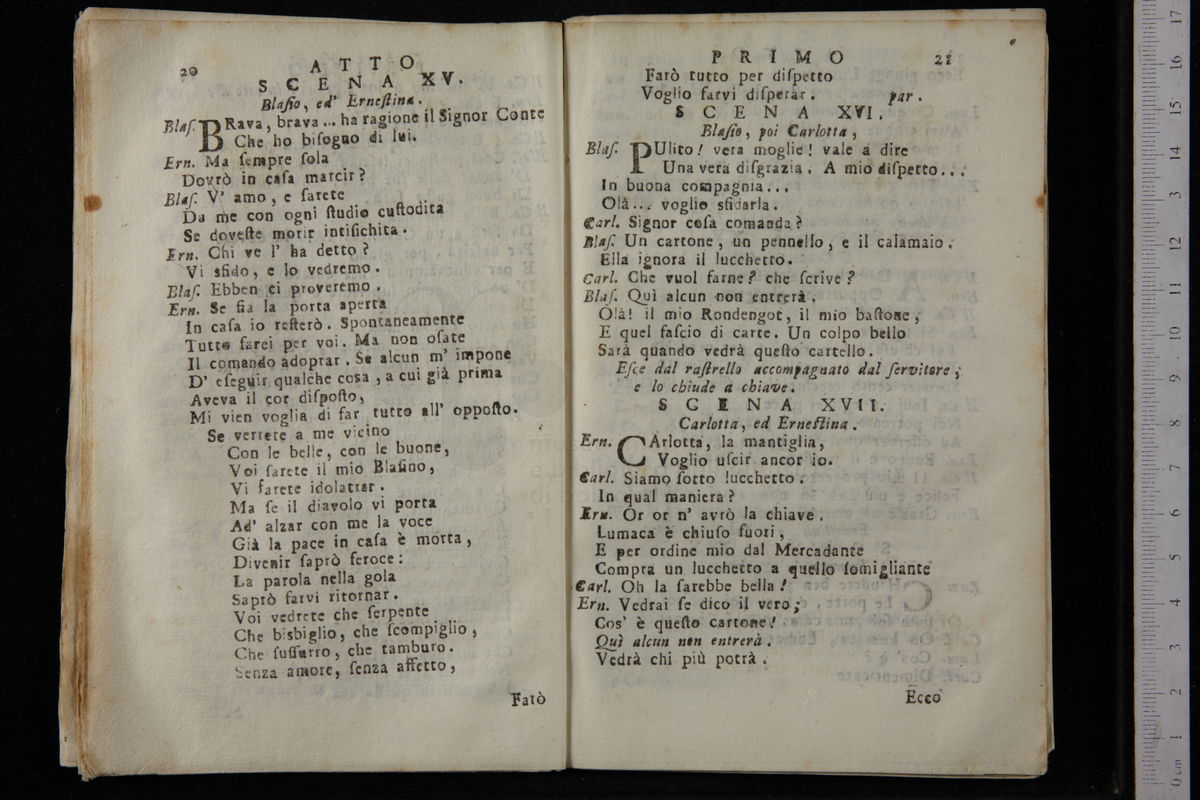 20
ATTO
SCENA XV.
Blaſio, ed' Erneſtina.
Blaſ. BRava, brava... ha ragione il Signor Conte
Che ho biſogno di lui.
Ern. Ma ſempre ſola
Dovrò in caſa marcir?
Blaſ. V' amo, e ſarete
Da me con ogni ſtudio cuſtodita
Se doveſte morir intiſichita.
Ern. Chi ve l' ha detto?
Vi sfido, e lo vedremo.
Blaſ. Ebben ci proveremo.
Ern. Se ſia la porta aperta
In caſa io reſterò. Spontaneamente
Tutto farei per voi. Ma non oſate
Il comando adoprar. Se alcun m' impone
D' eſeguir qualche cosa, a cui già prima
Aveva il cor diſpoſto,
Mi vien voglia di far tutto all' oppoſto.
Se verrete a me vicino
Con le belle, con le buone,
Voi ſarete il mio Blaſino,
Vi farete idolatrar.
Ma ſe il diavolo vi porta
Ad' alzar con me la voce
Già la pace in caſa è morta,
Divenir ſaprò feroce:
La parola nella gola
Saprò farvi ritornar.
Voi vedrete che ſerpente
Che bisbiglio, che ſcompiglio,
Che ſuſſurro, che tamburo.
Senza amore, ſenza affetto,
Farò
PRIMO
21
Farò tutto per diſpetto
Voglio farvi diſperar. par.
SCENA XVI.
Blaſio, poi Carlotta,
Blaſ. PUlito! vera moglie! vale a dire
Una vera diſgrazia. A mio diſpetto...
In buona compagnia...
Olà... voglio sfidarla.
Carl. Signor coſa comanda?
Blaſ. Un cartone, un pennello, e il calamaio.
Ella ignora il lucchetto.
Carl. Che vuol farne? che ſcrive?
Blaſ. Quì alcun non entrerà.
Olà! il mio Rondengot, il mio baſtone,
E quel faſcio di carte. Un colpo bello
Sarà quando vedrà queſto cartello.
Eſce dal raſtrello accompagnato dal ſervitore,
e lo chiude a chiave.
SCENA XVII.
Carlotta, ed Erneſtina.
Ern. CArlotta, la mantiglia,
Voglio uſcir ancor io.
Carl. Siamo ſotto lucchetto.
In qual maniera?
Ern. Or or n' avrò la chiave.
Lumaca è chiuſo fuori,
E per ordine mio dal Mercadante
Compra un lucchetto a quello ſomigliante
Carl. Oh la ſarebbe bella!
Ern. Vedrai ſe dico il vero;
Cos' è queſto cartone!
Quì alcun non entrerà.
Vedrà chi più potrà.
Ecco